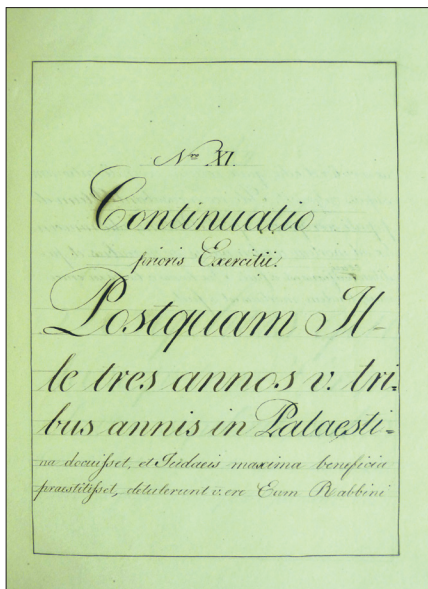 Nro XI.
Continuatio
prioris Exercitii.
Postquam Il-
le tres annos v. tri-
bus annis in Palaesti-
na docuisset, et Judaeis maxima beneficia
praestitisset, detulerunt v. ero Eum Rabbini